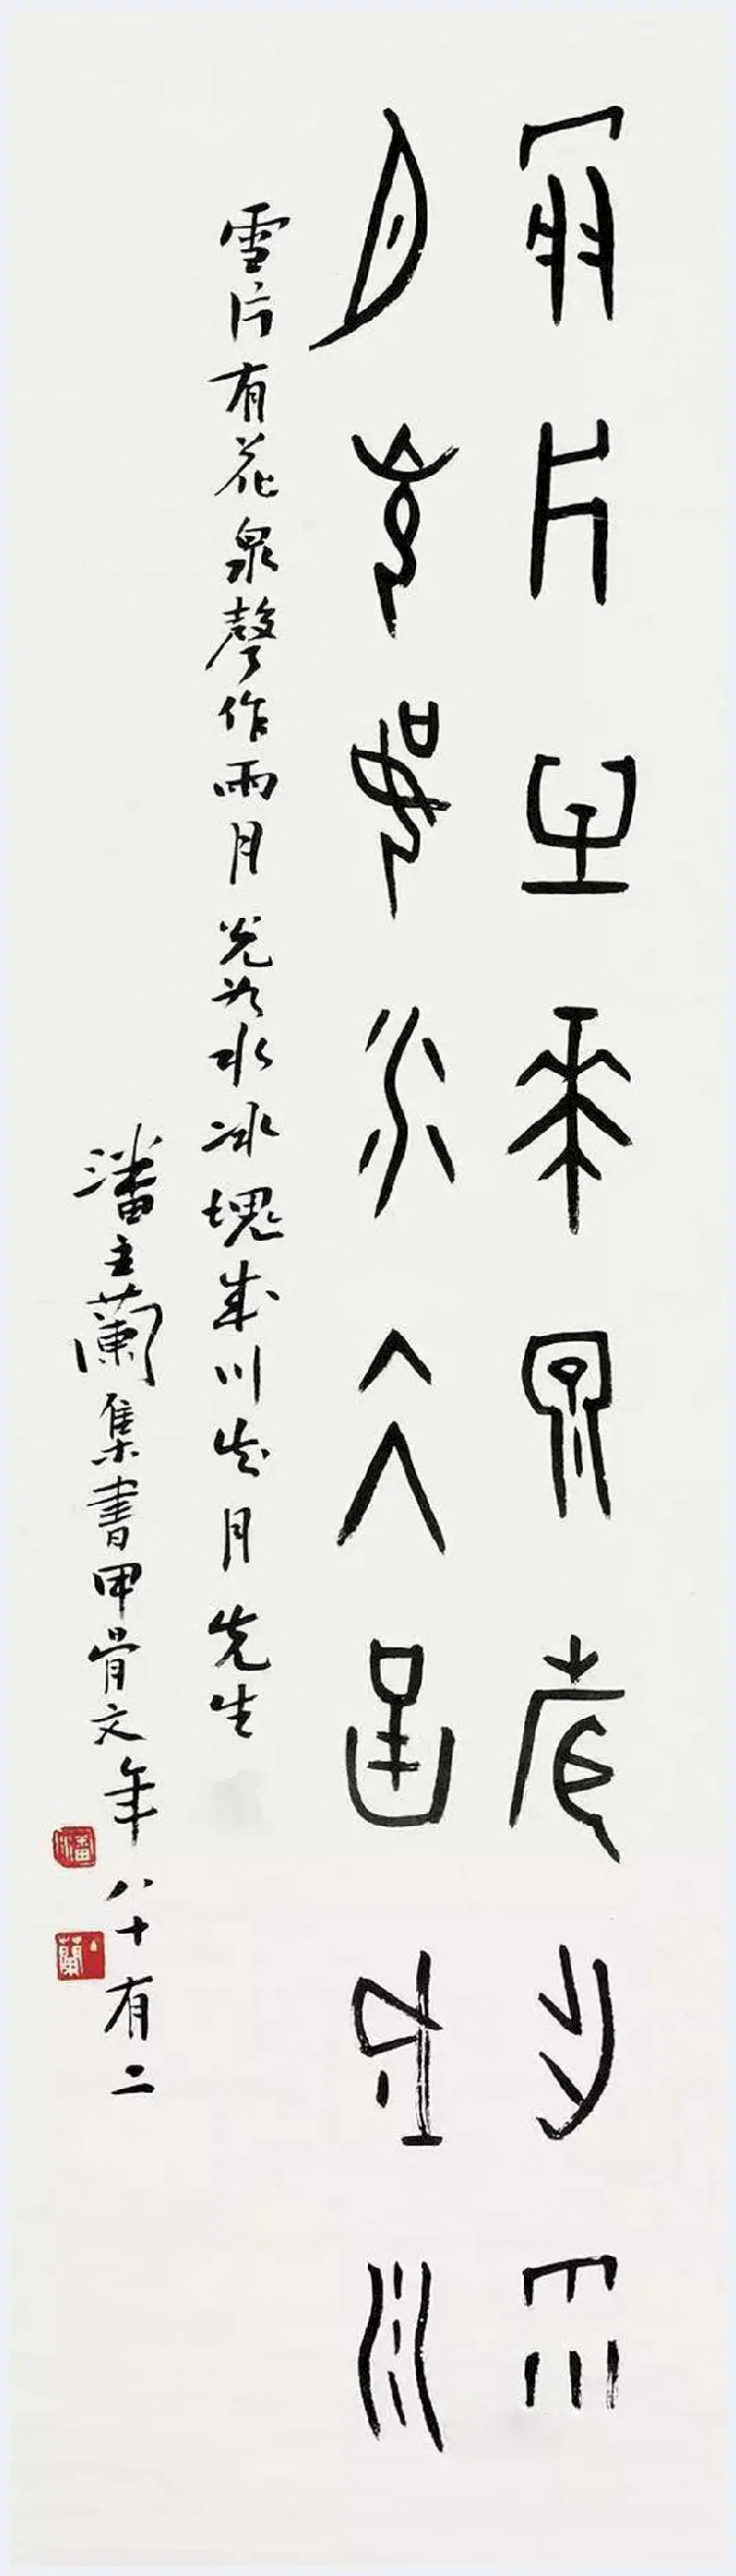 雪片有花泉聲作雨
月光為水冰塊成川
雪片有花泉聲作雨月光为水冰塊成川月先生
潘主蘭集書甲骨文年八十有二